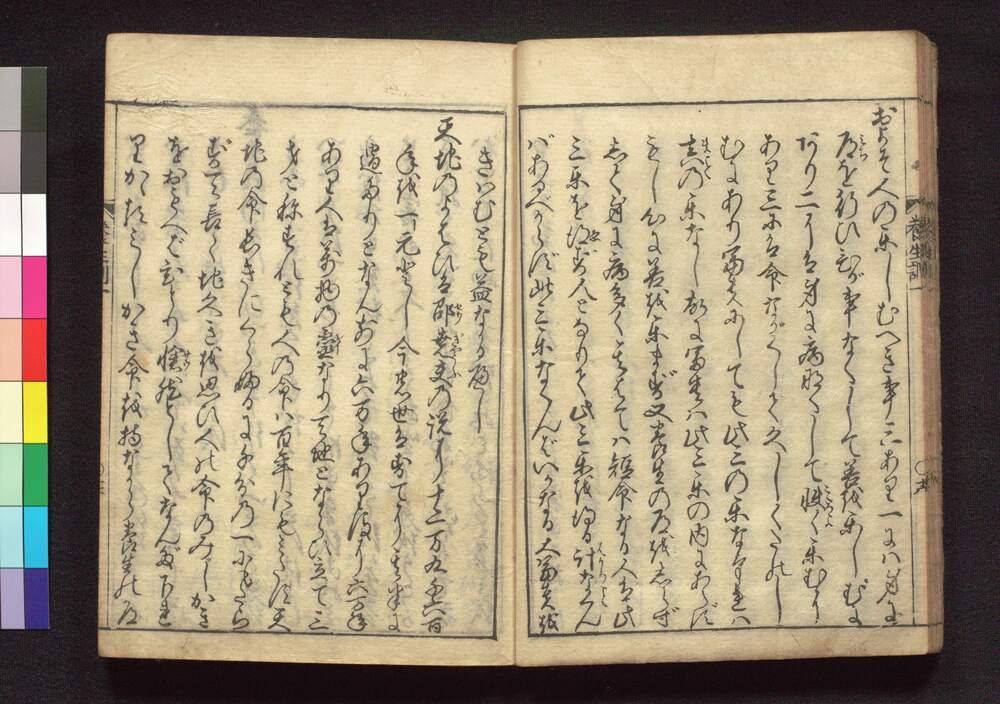 養生訓
およそ人の楽しむべき事三あり一には身に
道を行ひひが事なくして善を楽しむに
あり二には身に病なくして快く楽むに
あり三には命ながくして久しくたのし
むにあり富貴にしても此三の楽なければ
真の楽なし故に富貴は此三楽の内にあらず
もし心に善を楽まず又養生の道をしらず
して身に病多く其はては短命なる人は此
三楽を得ず人となりては此三楽を得る計なくん
ばあるべからず此三楽なくんばいかなる大富貴を
きはむとも益なかるべし
天地のよはひは邵尭夫の説に十二万九千六百
年を一元とし今の世はすでに其半に
過たりとなん前に六万年あり後に六万年
あり人は万物の霊なり天地とならび立て三
才と称すれども人の命は百年にもみたず天
地の命長きにくらぶるに千分の一にもたら
ず天長く地久きを思ひ人の命のみじかき
をおもへばひとり愴然としてなんだ下れ
りかゝるみじかき命を持ながら養生の道